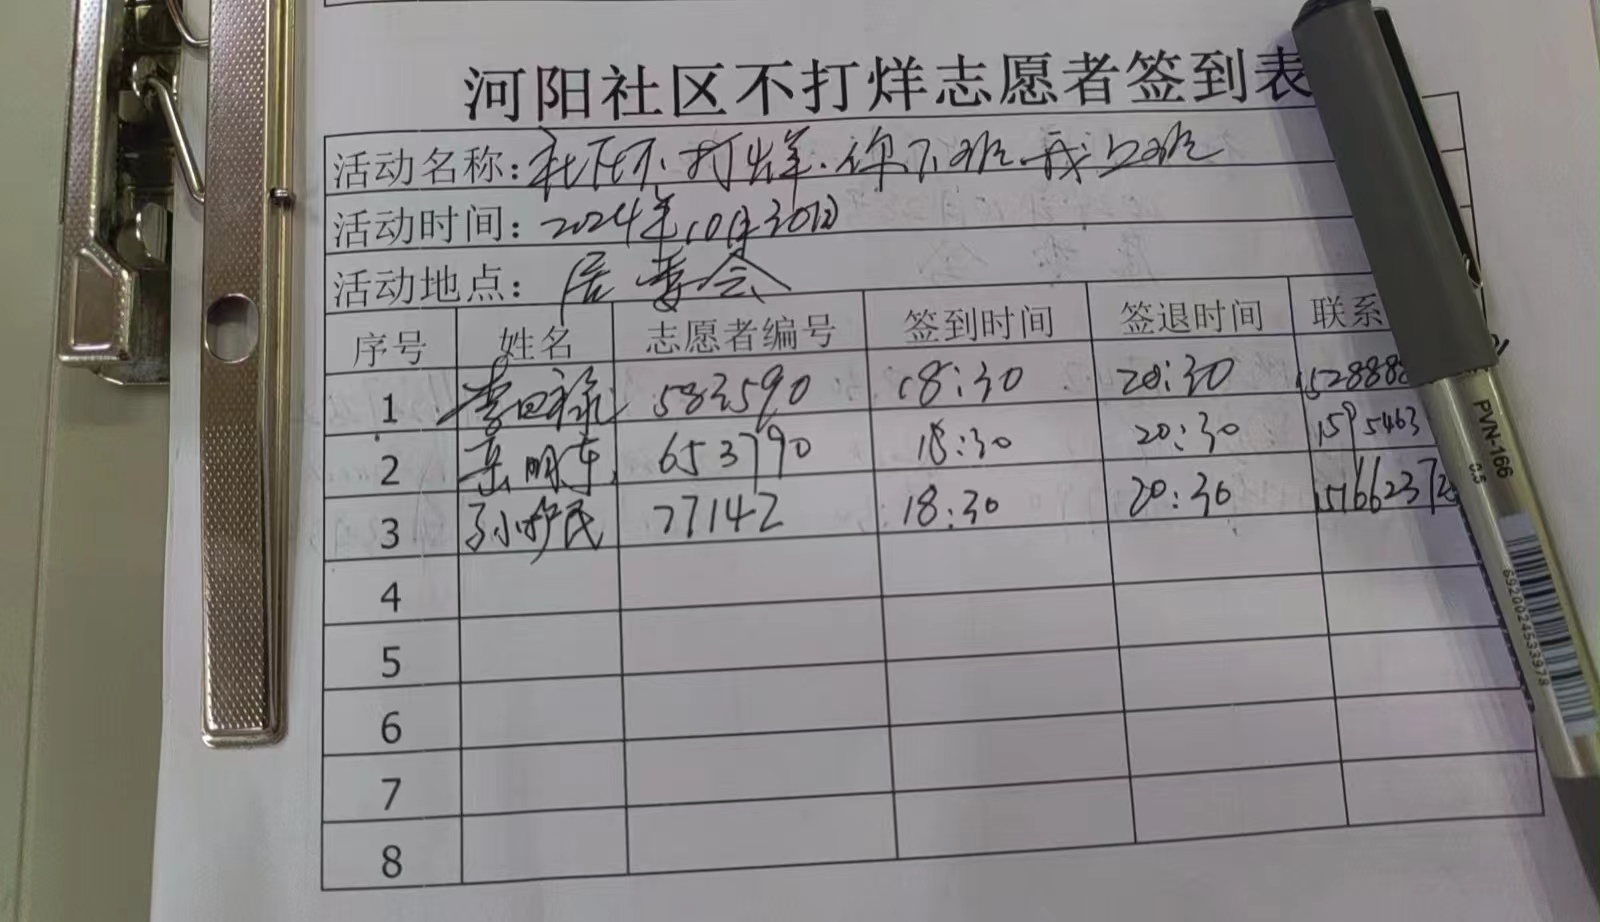 河阳社区不打烊志愿者签到表
活动名称:社区不打烊.你下班.我上班
活动时间:2024年10月30日
活动地点:居委会
序号 姓名 志愿者编号 签到时间 签退时间 联系
1 李四禄 583590 18:30 20:30 152888
2 岳明东 653790 18:30 20:30 1595463
3 孙护民 77142 18:30 20:30 15766237
4
5
6
7
8
PVN-166
0.5
6920024533978